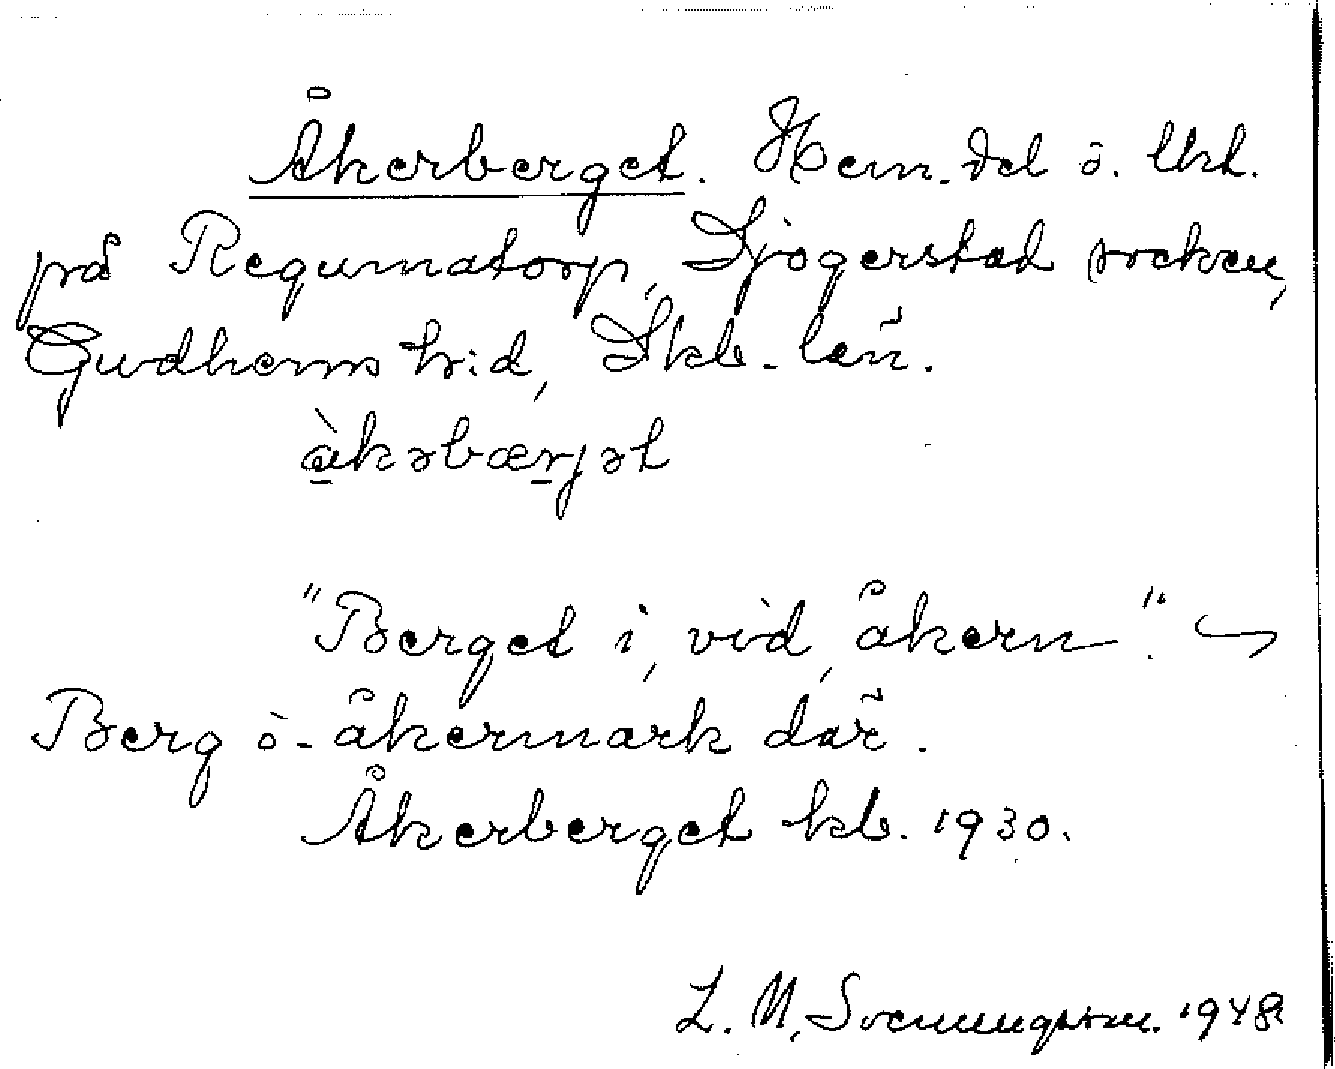 Åkerberget. Hem. del o. lht.
på Regumatorp, Sjogerstad socken,
Gudhems h:d, Skb. län.
àkəbærjət
"Berget i, vid, åkern".
Berg o. åkermark där.
Åkerberget kb. 1930.
L. M. Svenungsson. 1948